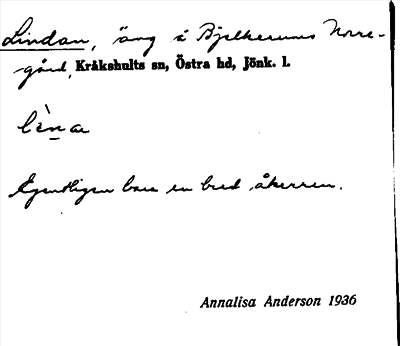 Lindan, äng å Bjelkerums Norre-
gård, Kråkshults sn, Östra hd, Jönk. l.
lena
Egentligen bara en bred åkerren.
Annalisa Anderson 1936